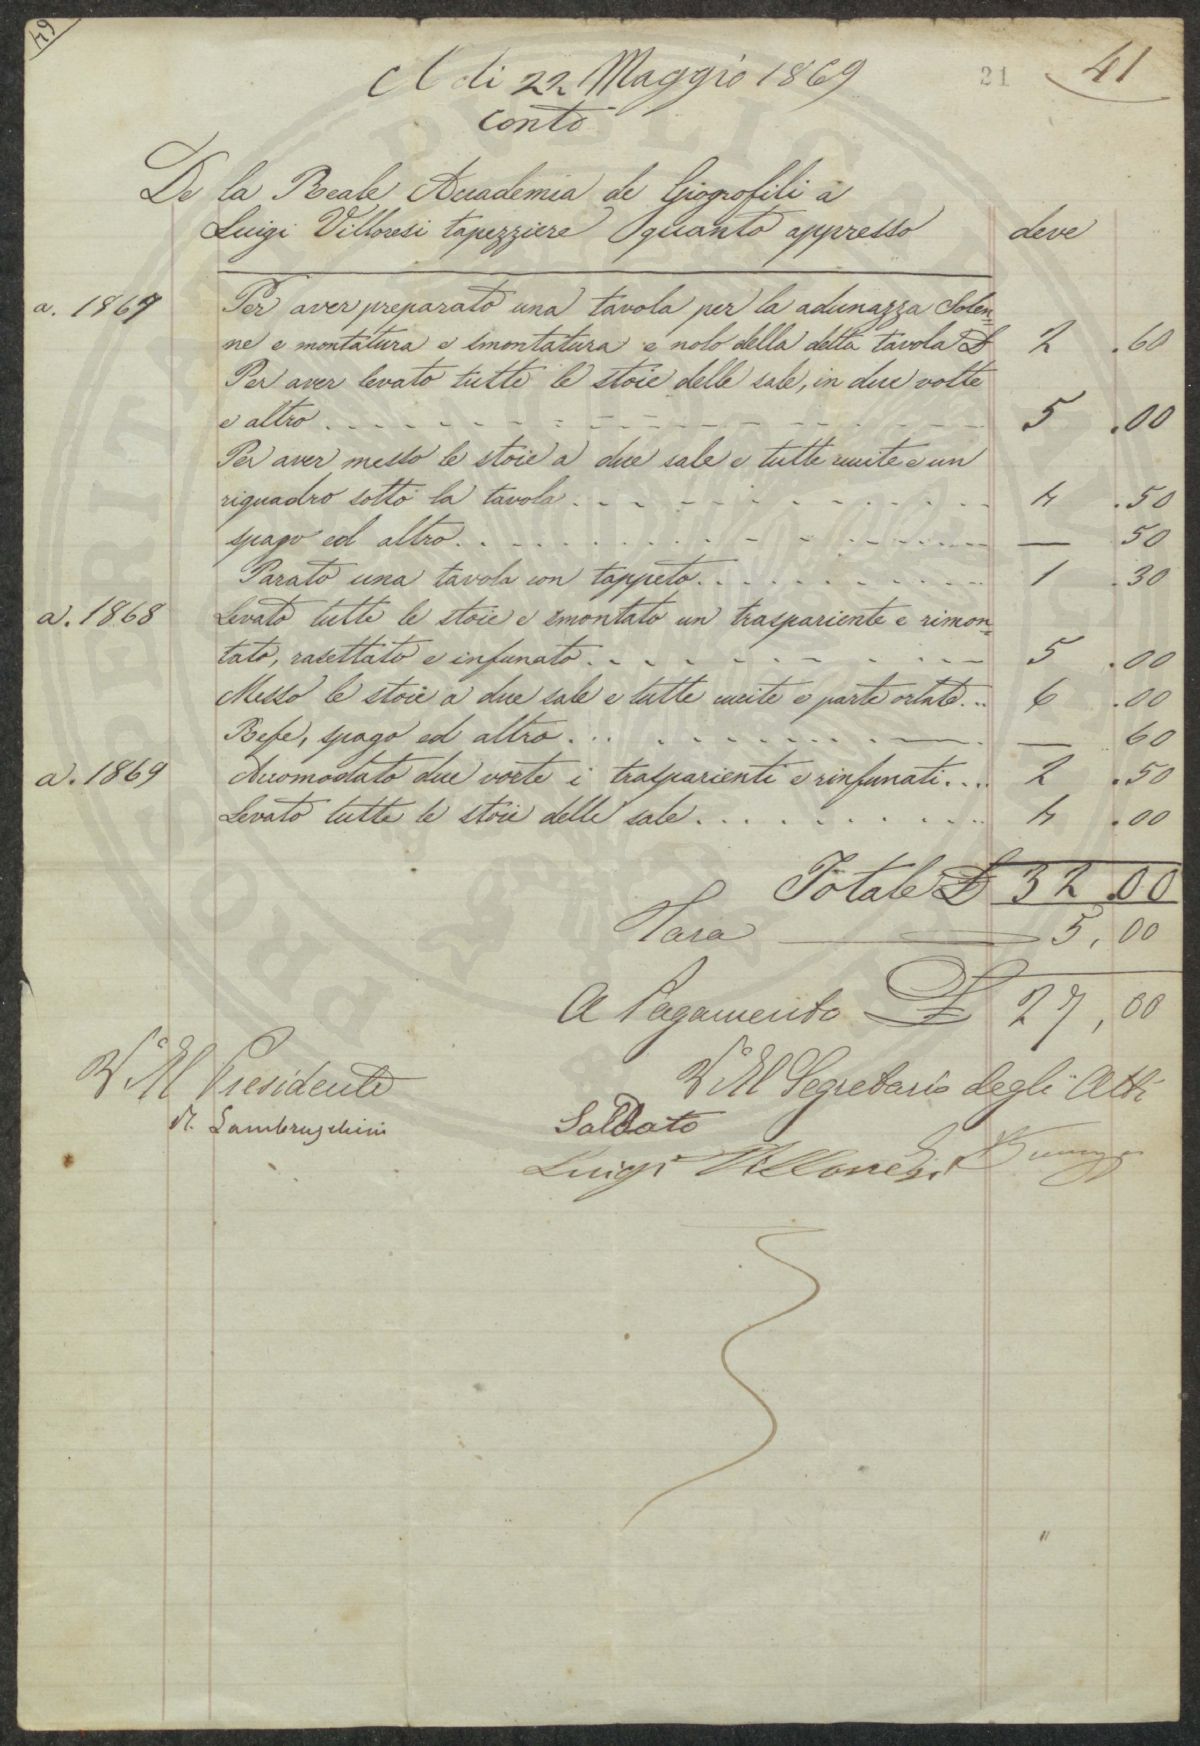 64
A di 22 Maggio 1869
21
41
Conto
De la Reale Accademia de Giogrofili a
Luigi Villoresi tapezziere quanto appresso deve
a. 1867 Per aver preparato una tavola per la adunazza Solen=
ne e montatura e smontatura e nolo della detta tavola £ 2 .60
Per aver levato tutte le stoie delle sale, in due volte
e altro 5 .00
Per aver messo le stoie a due sale e tutte cucite e un
riquadro sotto la tavola 4 .50
spago ed altro — 50
Parato una tavola con tappeto 1 .30
a. 1868 Levato tutte le stoie e smontato un traspariente e rimon=
tato, rasettato e infunato 5 .00
Messo le stoie a due sale e tutte cucite e parte orlate 6 .00
Refe, spago ed altro — 60
a. 1869 Accomodato due vorte i trasparienti e rinfunati 2 .50
Levato tutte le stoie delle sale 4 .00
Totale £ 32 .00
Tara 5,00
A Pagamento £ 27,00
V° Il Presidente
R. Lambruschini
V° Il Segretario degli Atti
Saldato
Luigi Villoresi